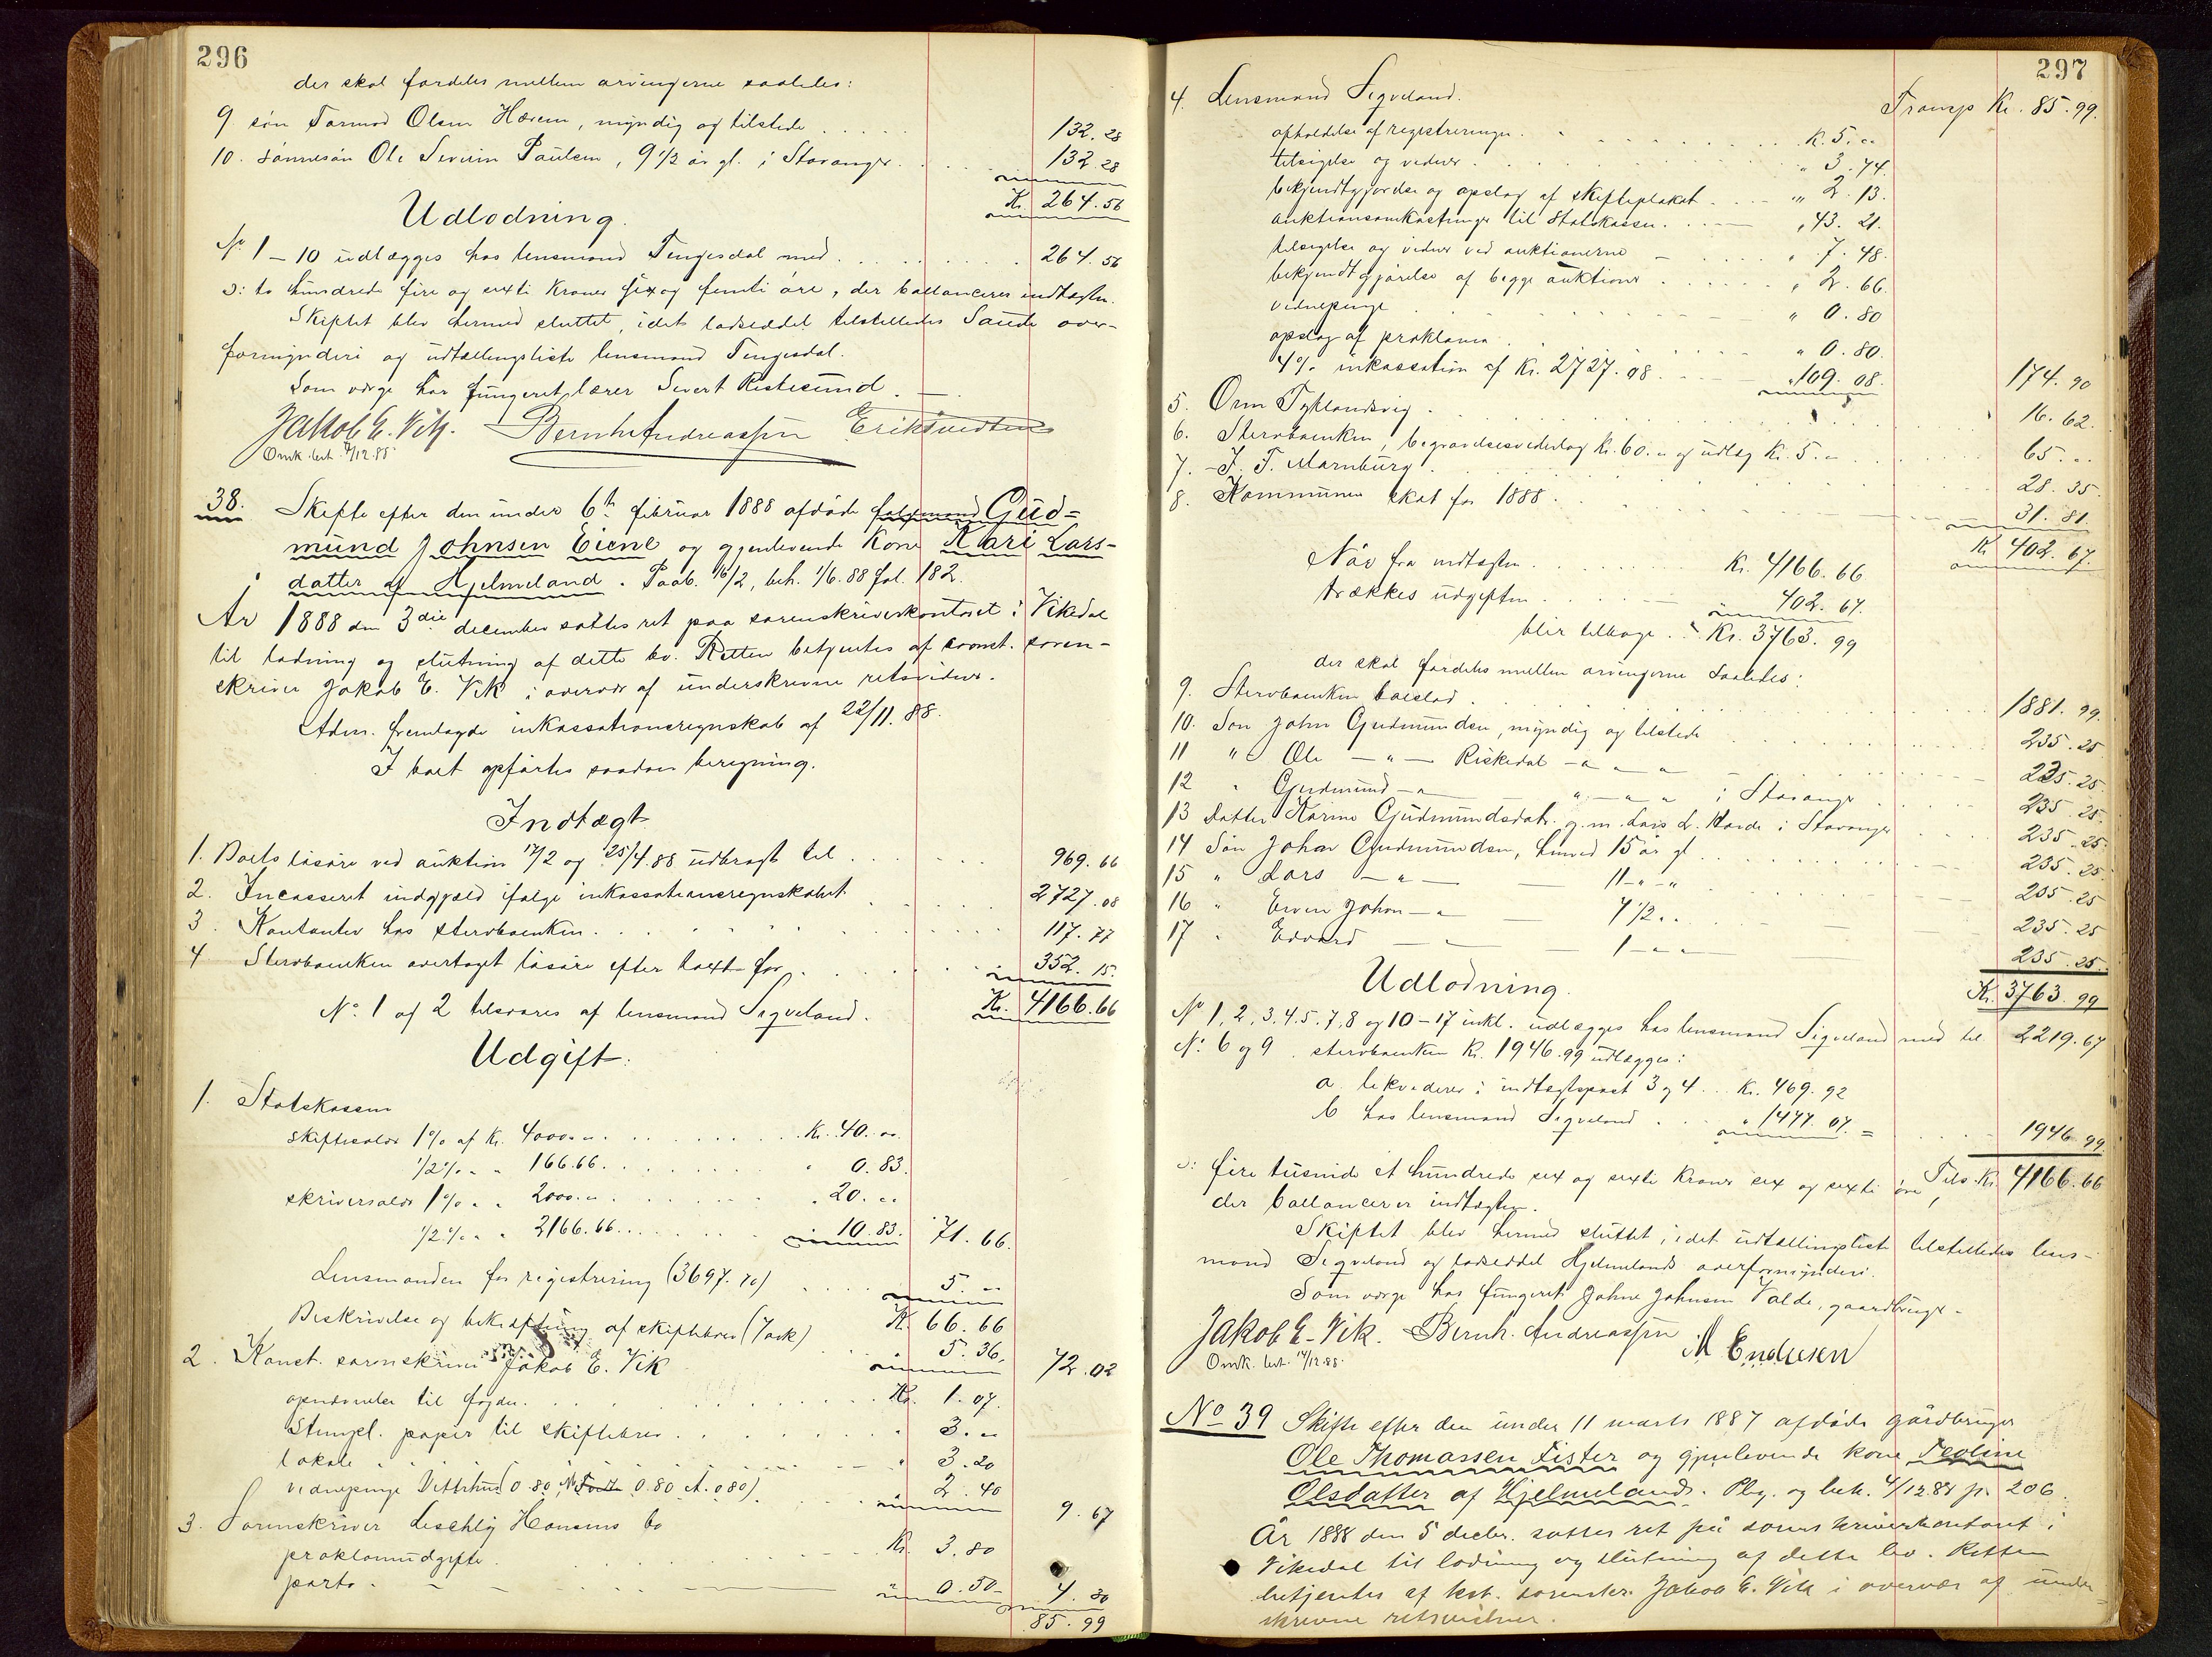 296
der skal fordeles mellem arvingerne saaledes:
9. søn Tormod Olsen Hærem, myndig og tilstede . . . . . 132.28
10. sønnesøn Ole Severin Paulsen, 9 1/2 år gl. i Stavanger . . . 132.28
Kr. 264.56
Udlodning.
No 1 – 10 udlægges hos lensmand Tengesdal med . . . . . . . 264.56
ɔ: to hundrede fire og sexti Kroner sex og femti øre, der ballancerer indtægten.
Skiftet blev hermed sluttet, idet lodseddel tilstilledes Saude over-
formynderi og udtællingsliste lensmand Tengesdal.
Som værge har fungeret lærer Sivert Ristesund. —
Jakob E. Vik. Bernh. Andreassen
Omk. bet. /12.88
38. Skifte efter den under 6te februar 1888 afdøde Gud=
mund Johnsen Eiene og gjenlevende Kone Kari Lars-
datter af Hjelmeland. Paab. 16/2, beh. 1/6.88 fol. 182.
Ar 1888 den 3die december sattes ret paa sorenskriverkontoret i Vikedal
til lodning og slutning af dette bo. Retten betjentes af const. soren-
skriver Jakob E. Vik i overvær af underskrevne retsvidner.
Adm. fremlagde inkassationsregnskab af 22/11.88.
I boet opførtes saadan beregning.
Indtægt
1. Boets løsøre ved auktion 17/2 og 25/4.88 udbragt til . . . . 969.66
2. Incasseret indgjæld ifølge inkassationsregnskabet . . . . 2727.08
3. Kontanter hos stervboenken . . . . . . . . 117.77
4 Stervboenken overtaget løsøre efter taxt for . . . . . . 352.15.
No 1 og 2 tilsvares af lensmand Sigveland. Kr. 4166.66
Udgift.
1. Statskassen
skiftesalær 1% af Kr. 4000.„ . . . . . . . Kr. 40.„
1/2% „ „ 166.66 . . . . . . „ 0.83.
skriversalær 1% „ „ 2000.„ . . . . . . „ 20.„
1/2% „ „ 2166.66 . . . . . . 10.83. 71.66.
Lensmanden for registrering (3697.70) . . . 5.„
K. 66.66
Beskrivelse og bekræftning af skiftebrev (7ark) 5.36. 72.02
2. Konst. sorenskriver Jakob E. Vik
gjendomler til fogden . . . . . . . . Kr. 1.07.
Stempl. papir til skiftebrev . . . . . . „ 3.„
lokale . . . . . . „ 3.20
vidnepenge Vetrhus (0.80, 0.80 A. 0.80) . . . 2.40 9.67
3. Sorenskriver Leschly Hansens bo
proklamudgifte . . . . . . Kr. 3.80
porto . . . . . . 0.50 4.30
85.99
297
Transp Kr. 85.99.
4. Lensmand Sigveland.
afholdelse af registreringen . . . . . . . K. 5.„
tilsigelse og vidner . . . . . . „ 3.74.
bekjendtgjørelse og opslag af skifteplakat . . . „ 2.13.
auktionsomkostninger til Statskassen . . . „ 43.21.
tilsigelse og vidner ved auktionerne . . „ 7.48.
bekjendtgjørelse af begge auktioner . . . . „ 2.66.
vidnepenge . . . . . . „ 0.80
opslag af proklama . . . . „ 0.80.
4% inkassation af Kr. 2727.08 . . . „ 109.08. 174.90
5. Orm Tytlandsvig . . . . . . 16.62.
6. Stervboenken, begravelsesvederlag Kr. 60.„ og udlæg Kr. 5.„ . . . 65.„
7. J. F. Marnburg . . . . . . 28.35.
8. Kommunen skat for 1888 . . . . . . 31.81.
Kr. 402.67.
Når fra indtægten . . . . . . Kr. 4166.66
trækkes udgiften . . . . . . 402.67.
blir tilbage . . Kr. 3763.99
der skal fordeles mellem arvingerne saaledes:
9. Stervboenken boeslod . . . . . . 1881.99.
10. Søn John Gudmundsen, myndig og tilstede . . . . 235.25
11 „ Ole — „ — Riskedal — „ — „ — 235.25.
12 „ Gudmund — „ — „ — „ i Stavanger . . 235.25.
13 datter Karine Gudmundsdatr. g. m. Lars L. Harde i Stavanger . . 235.25.
14 Søn Johan Gudmundsen, henved 15 år gl . . . . . 235.25.
15 „ Lars — „ — 11 „ „ . . . 235.25
16 „ Even Johan — „ — 7 1/2 „ „ . . . 235.25
17 „ Edvard — „ — 1 „ „ — 235.25.
Kr. 3763.99
Udlodning.
No 1, 2, 3, 4. 5. 7, 8 og 10 – 17 inkl. udlægges hos lensmand Sigveland med til. 2219.67
No 6 og 9. stervboenken Kr. 1946.99 udlægges:
a. likvideres i indtægtspost 3 og 4 . . Kr. 469.92
b hos lensmand Sigveland . . . „ 1477.07. = . . . 1946.99.
ɔ: fire tusinde et hundrede sex og sexti Kroner sex og sexti øre, Tils. Kr. 4166.66
der ballancerer indtægten.
Skiftet blev hermed sluttet, idet udtællingsliste tilstilledes lens-
mand Sigveland og lodseddel Hjelmelands overformynderi.
Som værge har fungeret Johne Johnsen Valde, gaardbruger.
Jakob E. Vik. Bernh. Andreassen M Endresen
Omk. bet. 14/12.88.
No 39 Skifte efter den under 11 marts 1887 afdøde gårdbruger
Ole Thomassen Fister og gjenlevende kone Teoline
Olsdatter af Hjelmeland. Pbg. og beh. 4/12.88 p. 206.
År 1888 den 5 decbr. sattes ret på sorenskriverkontoret i
Vikedal til lodning og slutning af dette bo. Retten
betjentes af kst. sorenskr. Jakob E. Vik i overvær af under-
skrevne retsvidner.